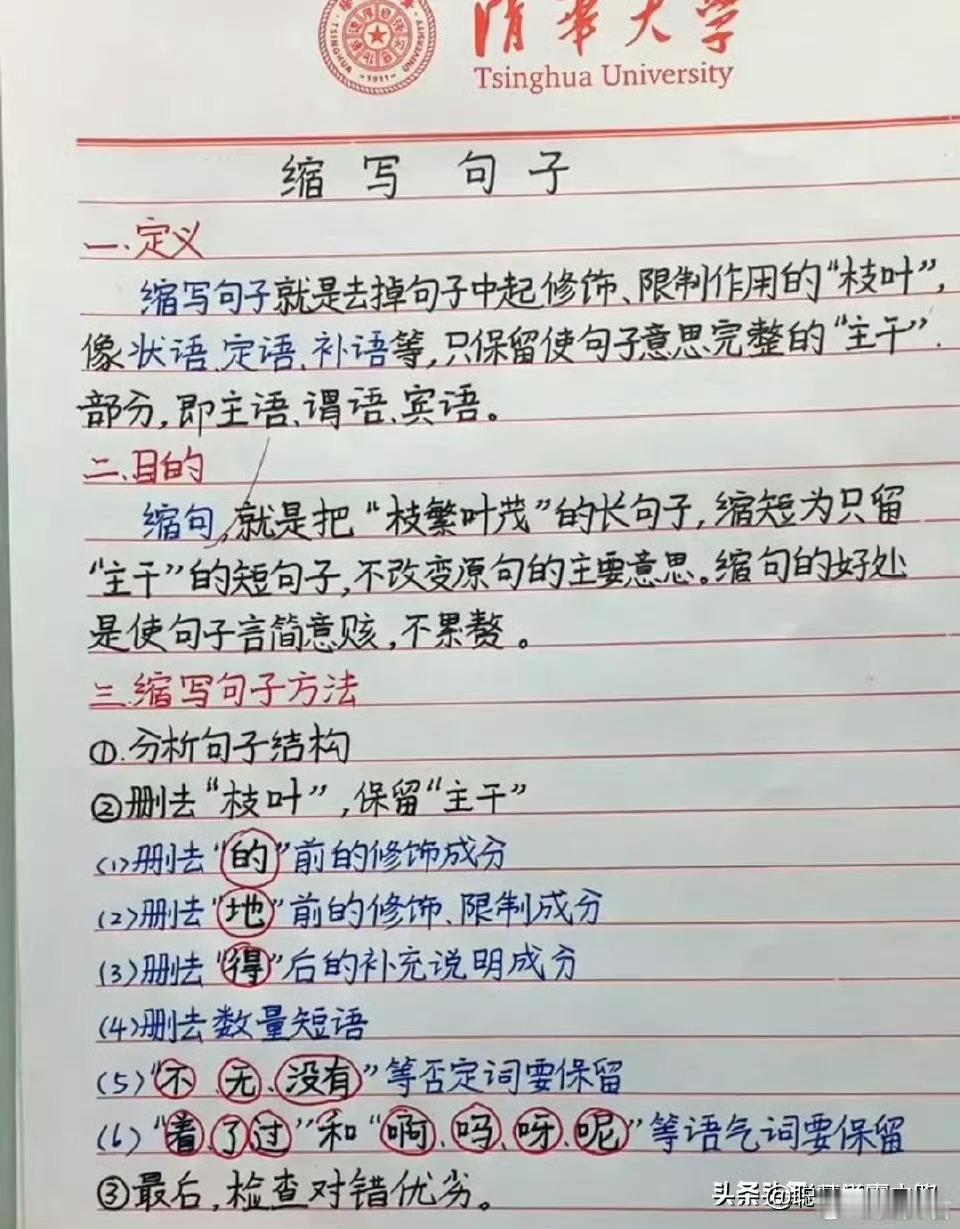 清华大学
Tsinghua University
TSINGHUA UNIVERSITY
1911
缩写句子
一.定义
缩写句子就是去掉句子中起修饰、限制作用的“枝叶”,
像状语、定语、补语等,只保留使句子意思完整的“主干”
部分,即主语、谓语、宾语。
二.目的
缩句,就是把“枝繁叶茂”的长句子,缩短为只留
“主干”的短句子,不改变原句的主要意思。缩句的好处
是使句子言简意赅,不累赘。
三.缩写句子方法
①.分析句子结构
②删去“枝叶”,保留“主干”
(1)删去“的”前的修饰成分
(2)删去“地”前的修饰、限制成分
(3)删去“得”后的补充说明成分
(4)删去数量短语
(5)“不、无、没有”等否定词要保留
(6)“着、了、过”和“啊、吗、呀、呢”等语气词要保留
③最后,检查对错优劣。
头条@聪